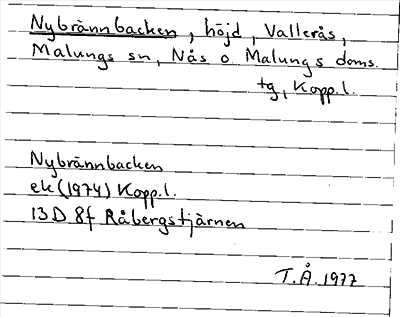 Nybrännbacken, höjd, Vallerås,
Malungs sn, Nås o. Malungs doms.
tg, Kopp.l.
Nybrännbacken
ek (1974) Kopp.l.
13D 8f Råbergstjärnen
T.Å. 1977